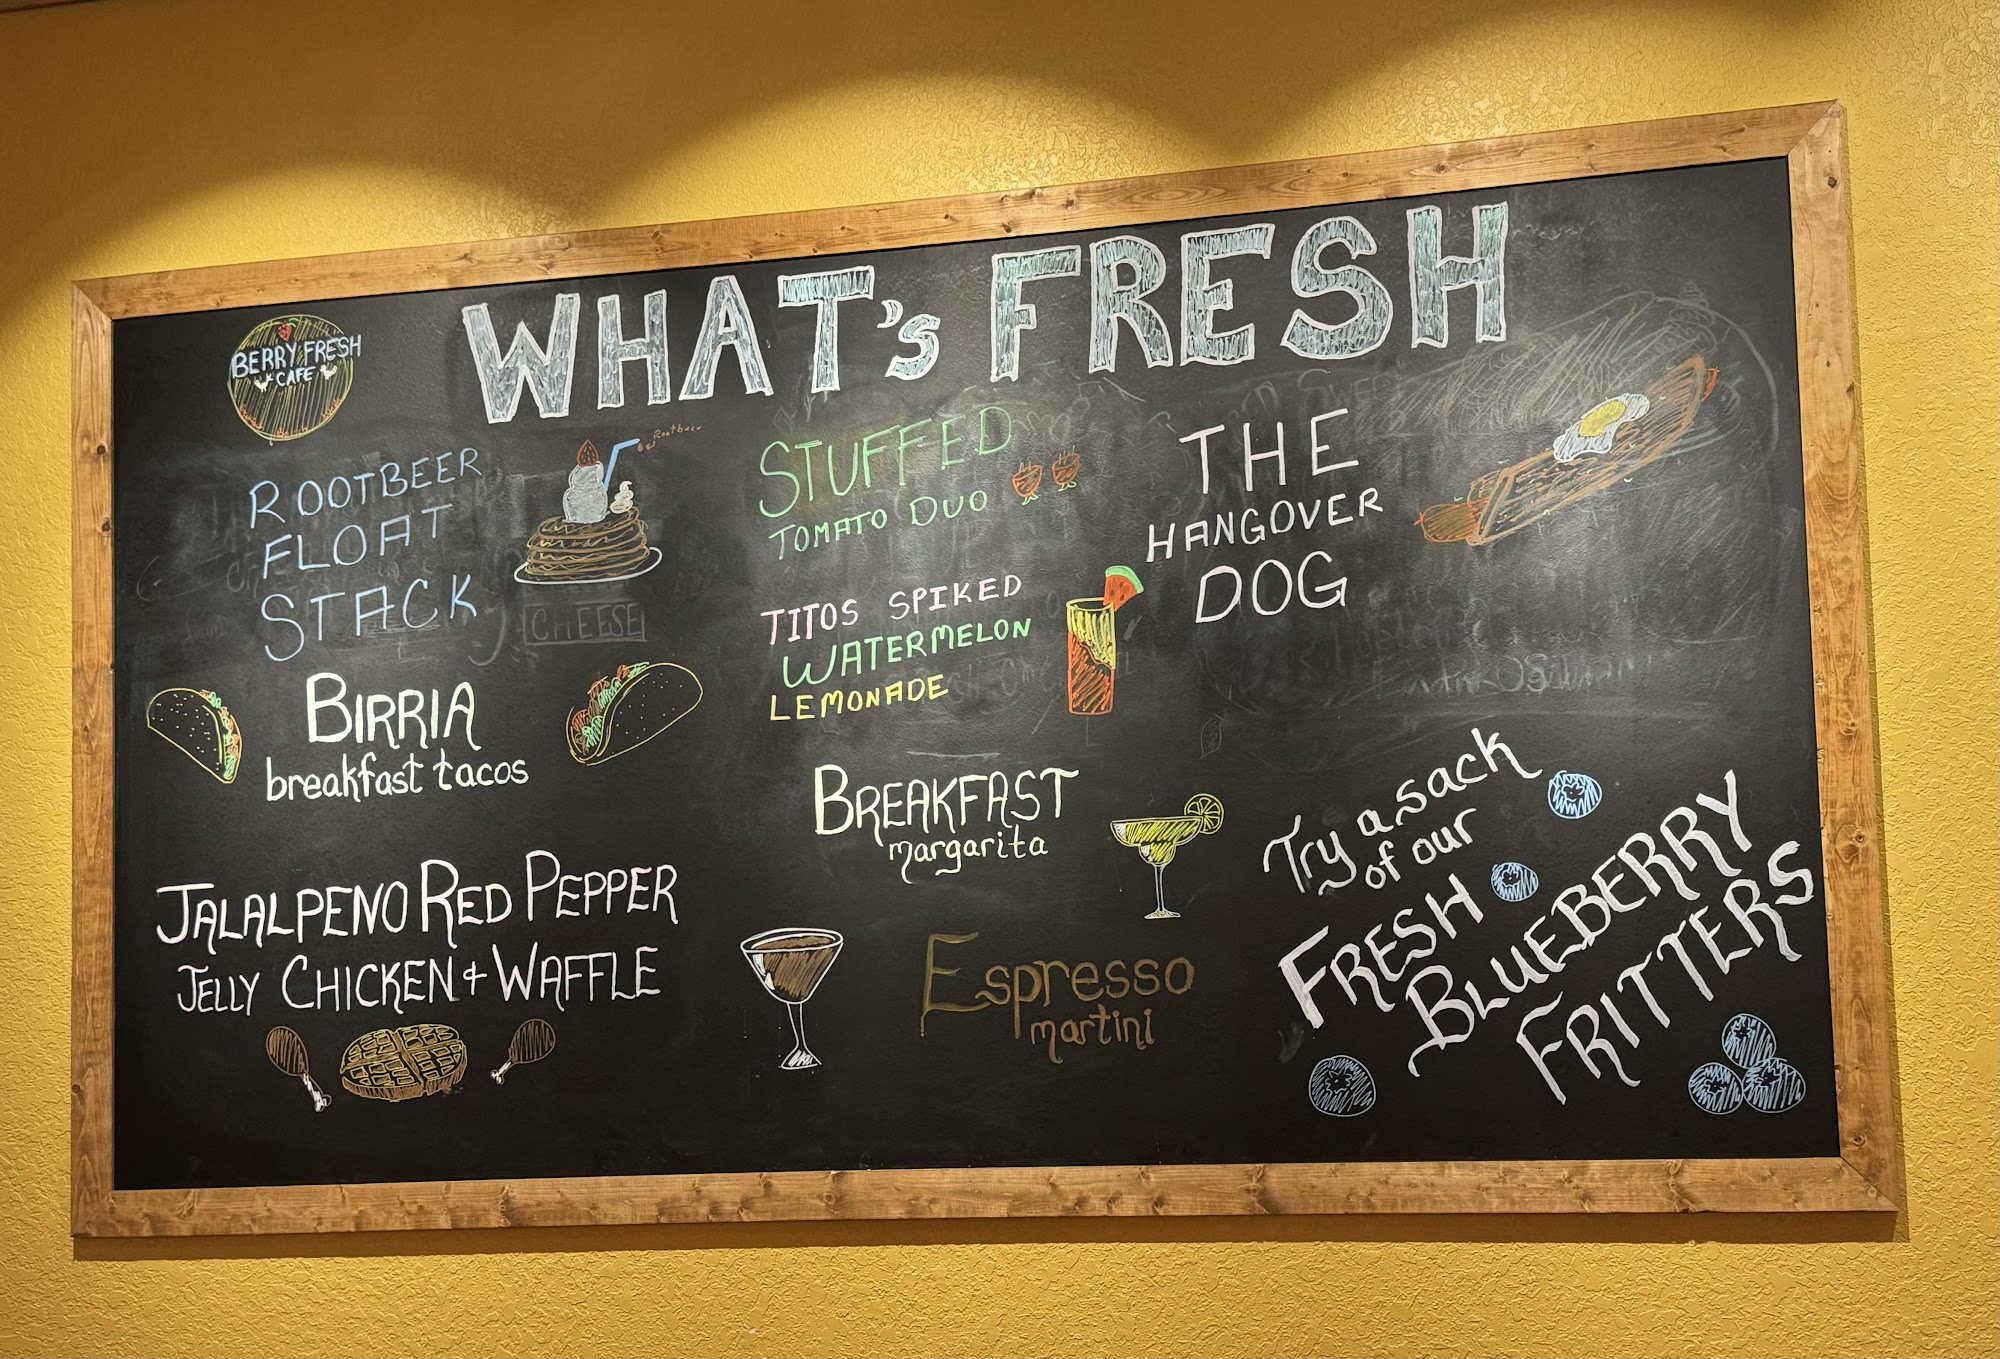 WHAT's FRESH
BERRY FRESH
CAFE
ROOTBEER
FLOAT
STACK
Rootbeer
CHEESE
BIRRIA
breakfast tacos
JALALPENO RED PEPPER
JELLY CHICKEN + WAFFLE
STUFFED
TOMATO DUO
TITOS SPIKED
WATERMELON
LEMONADE
BREAKFAST
margarita
Espresso
martini
THE
HANGOVER
DOG
Try a sack
of our
FRESH
BLUEBERRY
FRITTERS